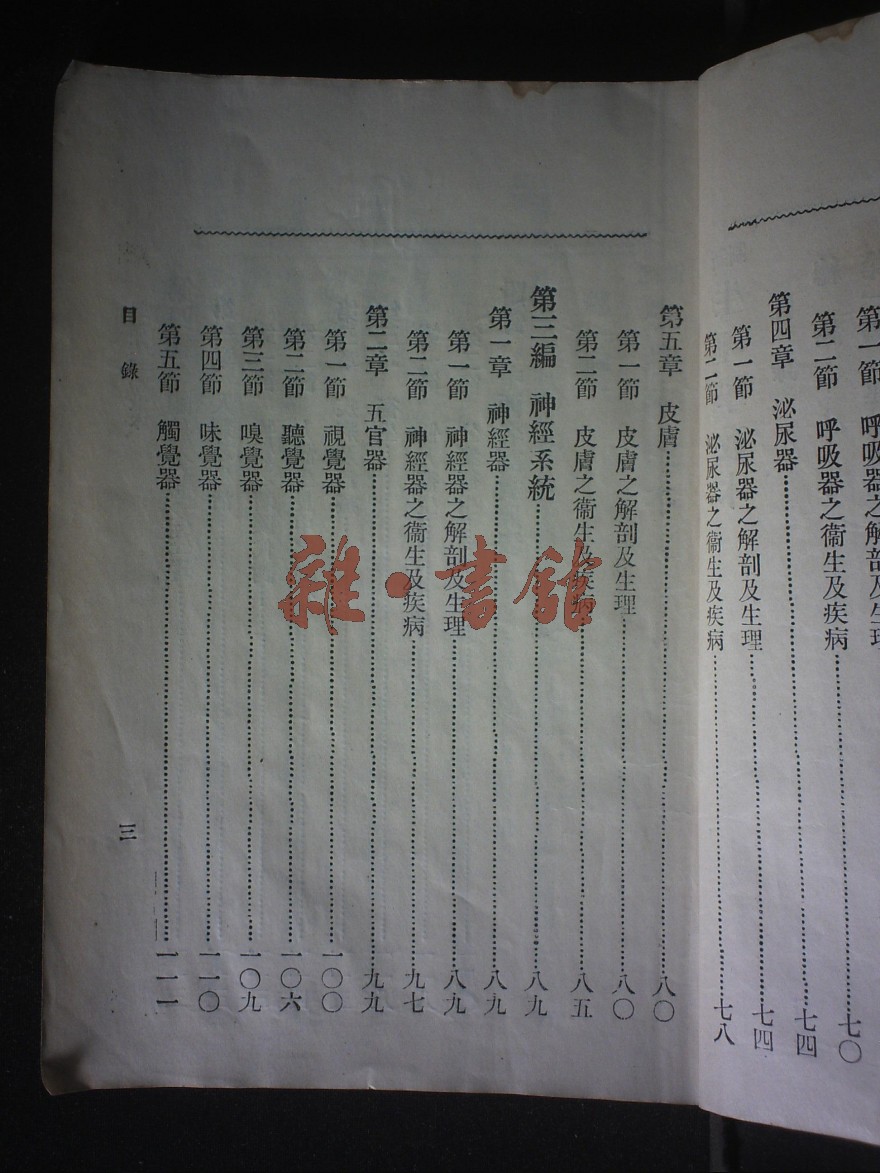 第一節　呼吸器之解剖及生理
第二節　呼吸器之衞生及疾病……七〇
第四章　泌尿器……七四
第一節　泌尿器之解剖及生理……七四
第二節　泌尿器之衞生及疾病……七八
第五章　皮膚……八〇
第一節　皮膚之解剖及生理……八〇
第二節　皮膚之衞生及疾病……八五
第三編　神經系統……八九
第一章　神經器……八九
第一節　神經器之解剖及生理……八九
第二節　神經器之衞生及疾病……九七
第二章　五官器……九九
第一節　視覺器……一〇〇
第二節　聽覺器……一〇六
第三節　嗅覺器……一〇九
第四節　味覺器……一一〇
第五節　觸覺器……一一一
目錄
三
雜·書舘